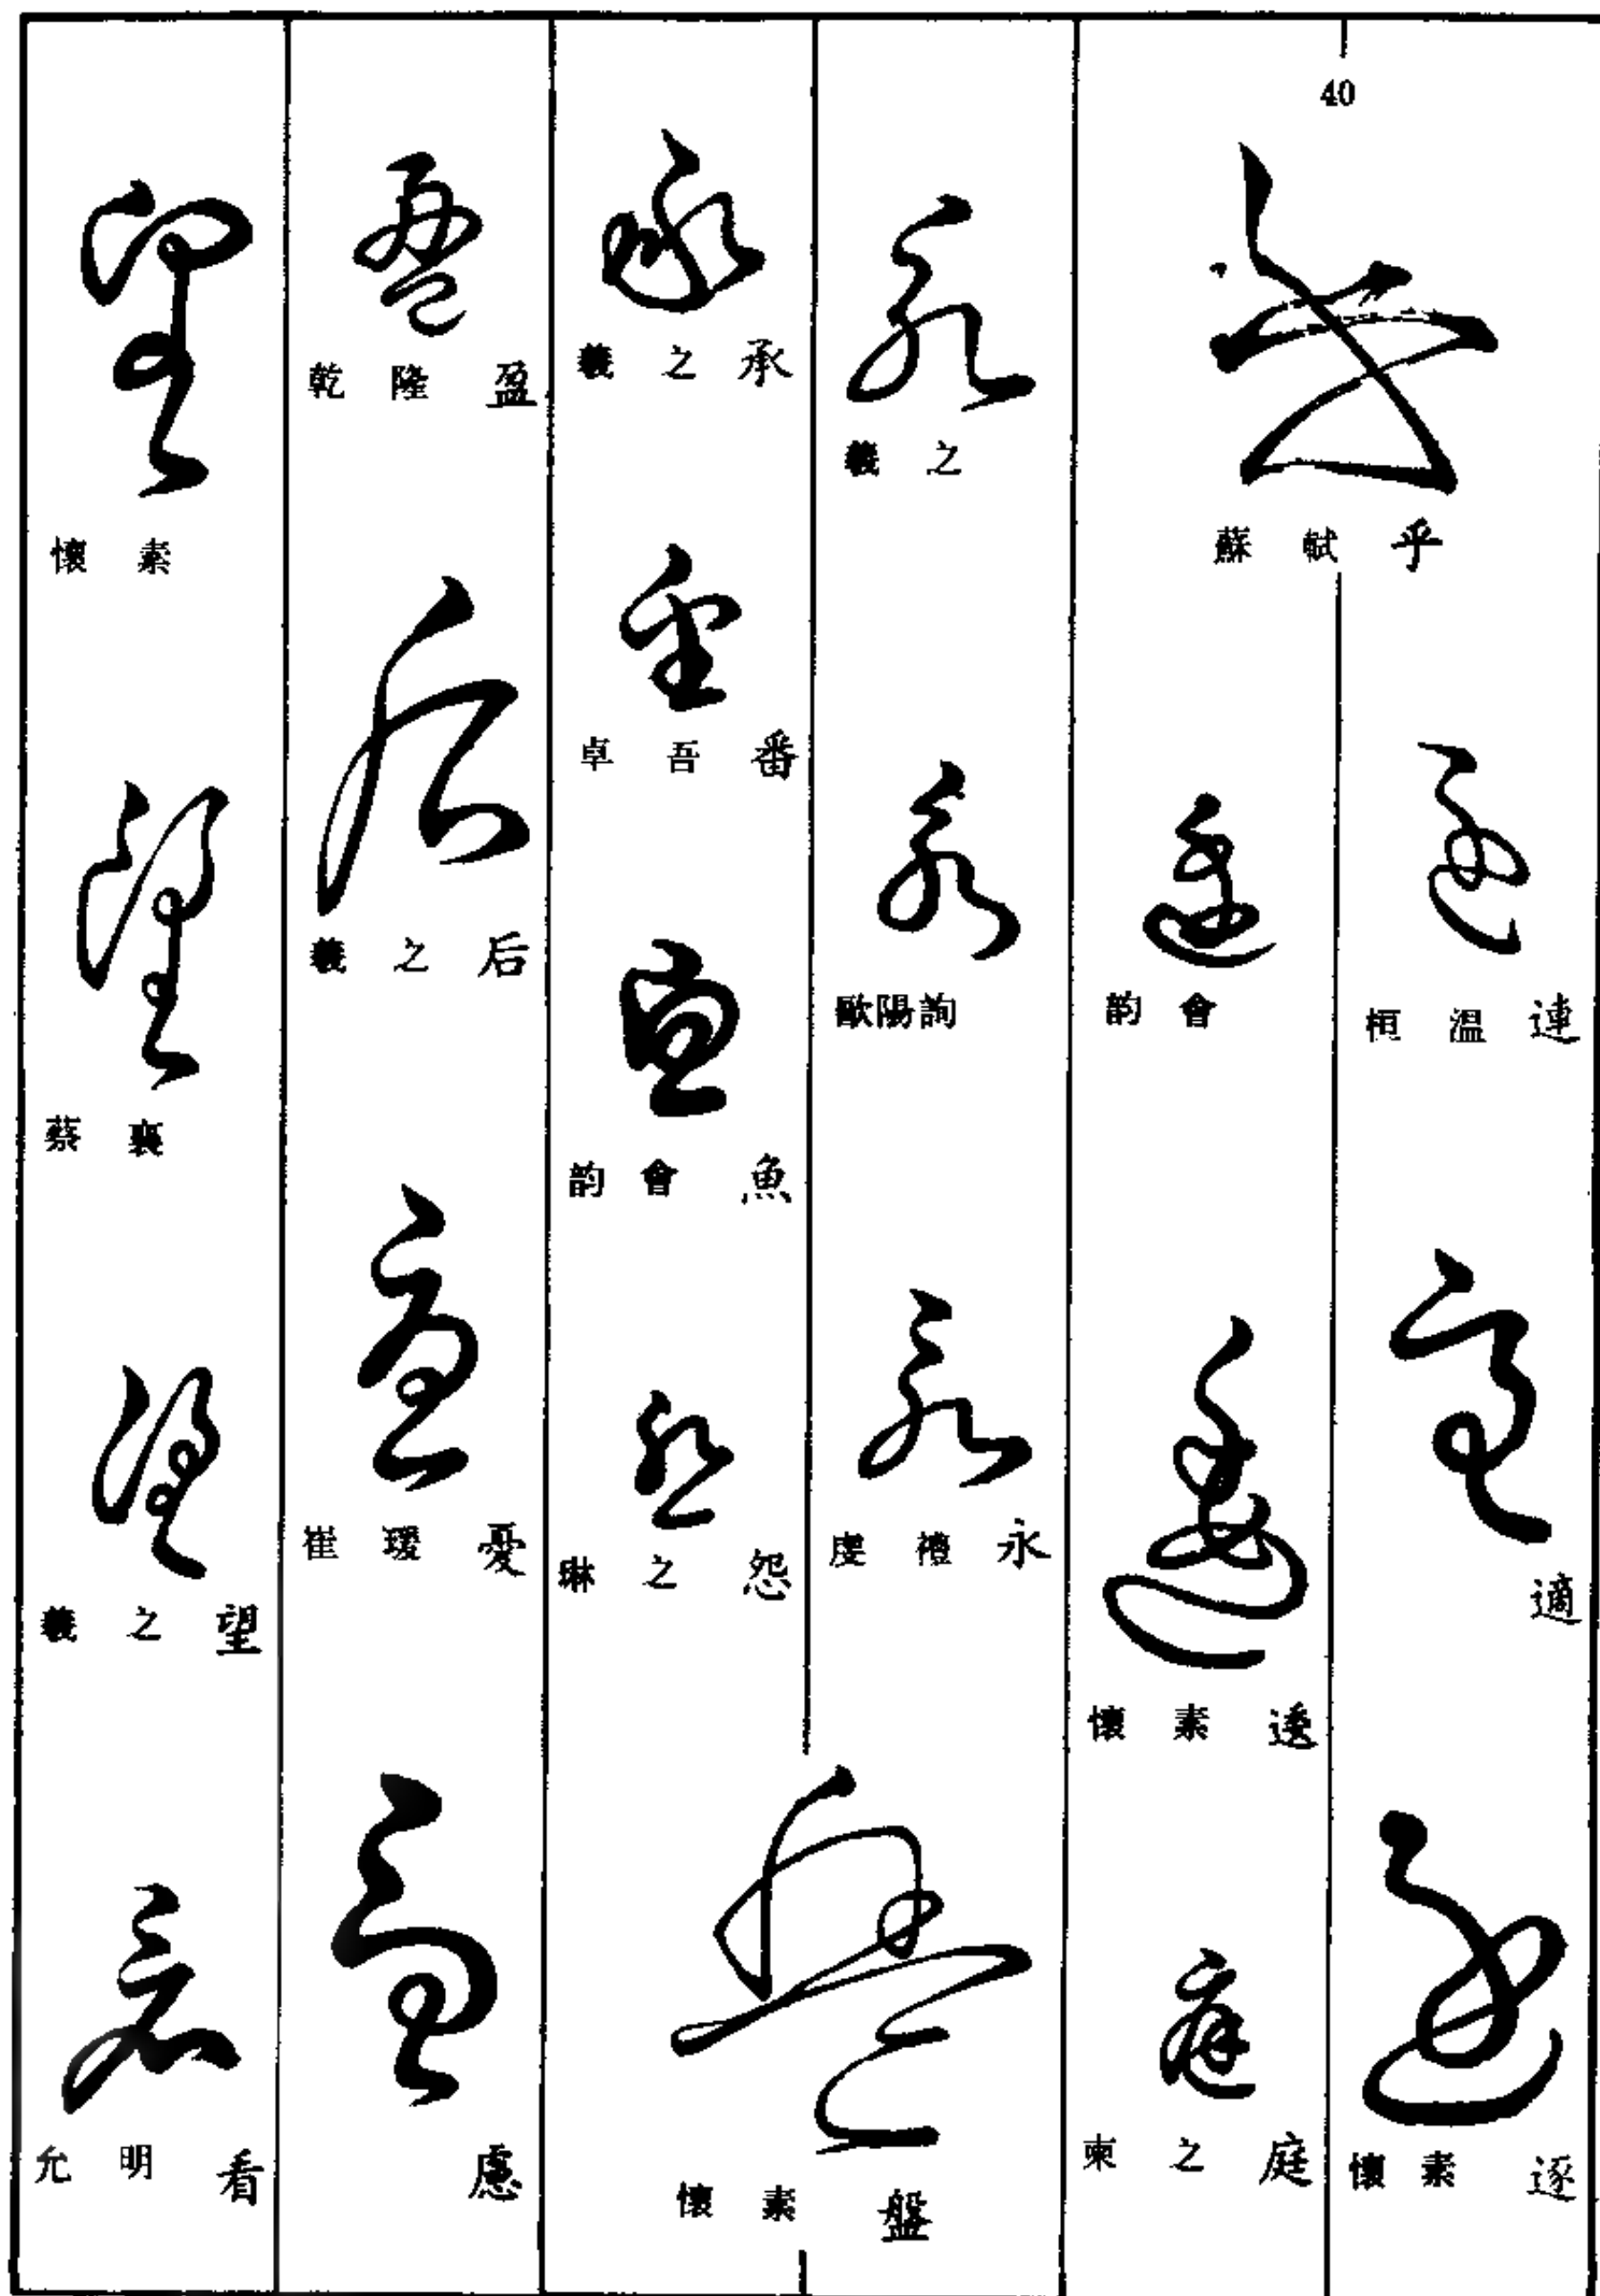 40
蘇軾 乎
桓溫 連
適
懷素 逐
韵會
懷素 逶
柬之 庭
羲之
歐陽詢
虔禮 永
懷素 盤
羲之 承
卓吾 番
韵會 魚
琳之 怨
乾隆 盈
羲之 后
崔瑗 憂
慮
懷素
蔡襄
羲之 望
允明 看